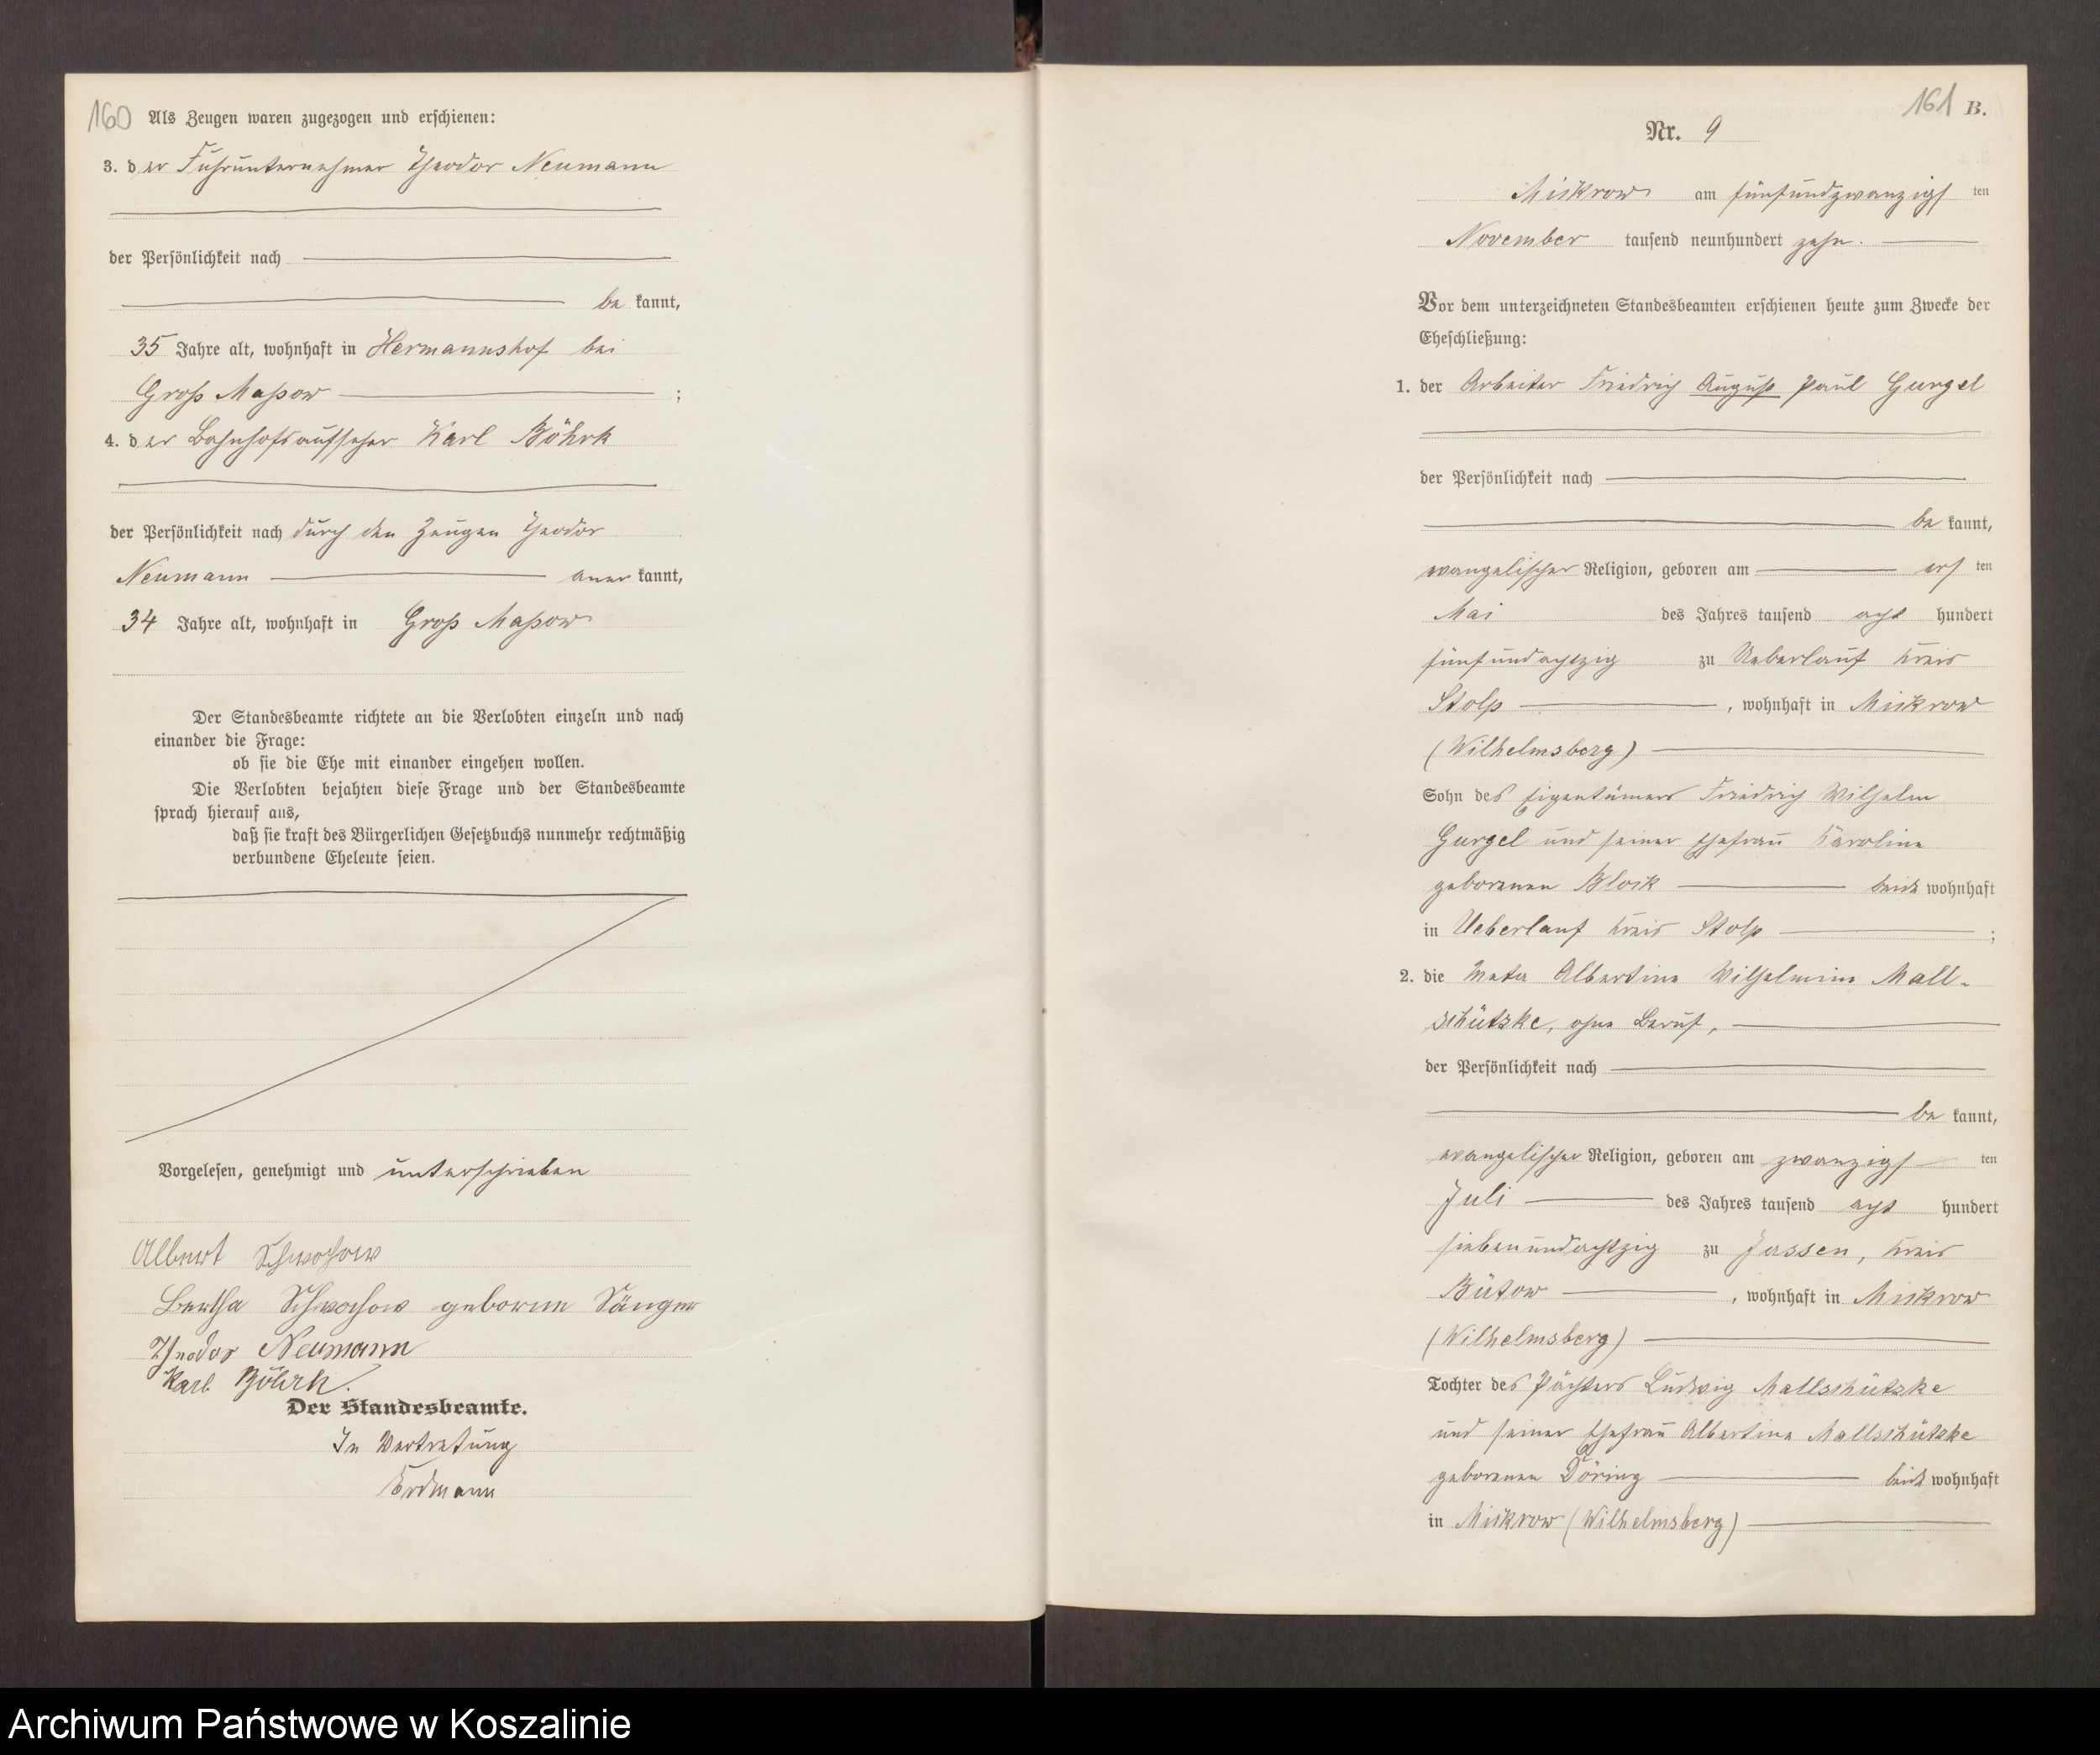 160 Als Zeugen waren zugezogen und erschienen:
3. der Fuhrunternehmer Theodor Neumann
der Persönlichkeit nach
be kannt,
35 Jahre alt, wohnhaft in Hermannshof bei
Groß Maßow ;
4. der Bahnhofsaufseher Karl Böhrk
der Persönlichkeit nach durch den Zeugen Theodor
Neumann aner kannt,
34 Jahre alt, wohnhaft in Groß Maßow
Der Standesbeamte richtete an die Verlobten einzeln und nach
einander die Frage:
ob sie die Ehe mit einander eingehen wollen.
Die Verlobten bejahten diese Frage und der Standesbeamte
sprach hierauf aus,
daß sie kraft des Bürgerlichen Gesetzbuchs nunmehr rechtmäßig
verbundene Eheleute seien.
Vorgelesen, genehmigt und unterschrieben
Albert Schwochow
Bertha Schwochow geborene Sänger
Theodor Neumann
Karl Böhrk.
Der Standesbeamte.
In Vertretung
Erdmann
161 B.
Nr. 9
Mickrow am fünfundzwanzigs ten
November tausend neunhundert zehn.
Vor dem unterzeichneten Standesbeamten erschienen heute zum Zwecke der
Eheschließung:
1. der Arbeiter Friedrich August Paul Gurgel
der Persönlichkeit nach
be kannt,
evangelischer Religion, geboren am ers ten
Mai des Jahres tausend acht hundert
fünfundachtzig zu Ueberlauf Kreis
Stolp , wohnhaft in Mickrow
(Wilhelmsberg)
Sohn des Eigentümers Friedrich Wilhelm
Gurgel und seiner Ehefrau Karoline
geborenen Block beide wohnhaft
in Ueberlauf Kreis Stolp ;
2. die Meta Albertine Wilhelmine Mall-
schützke, ohne Beruf,
der Persönlichkeit nach
be kannt,
evangelischer Religion, geboren am zwanzigs ten
Juli des Jahres tausend acht hundert
siebenundachtzig zu Jassen, Kreis
Bütow , wohnhaft in Mickrow
(Wilhelmsberg)
Tochter des Pächters Ludwig Mallschützke
und seiner Ehefrau Albertine Mallschützke
geborenen Döring beide wohnhaft
in Mickrow (Wilhelmsberg)
Archiwum Państwowe w Koszalinie